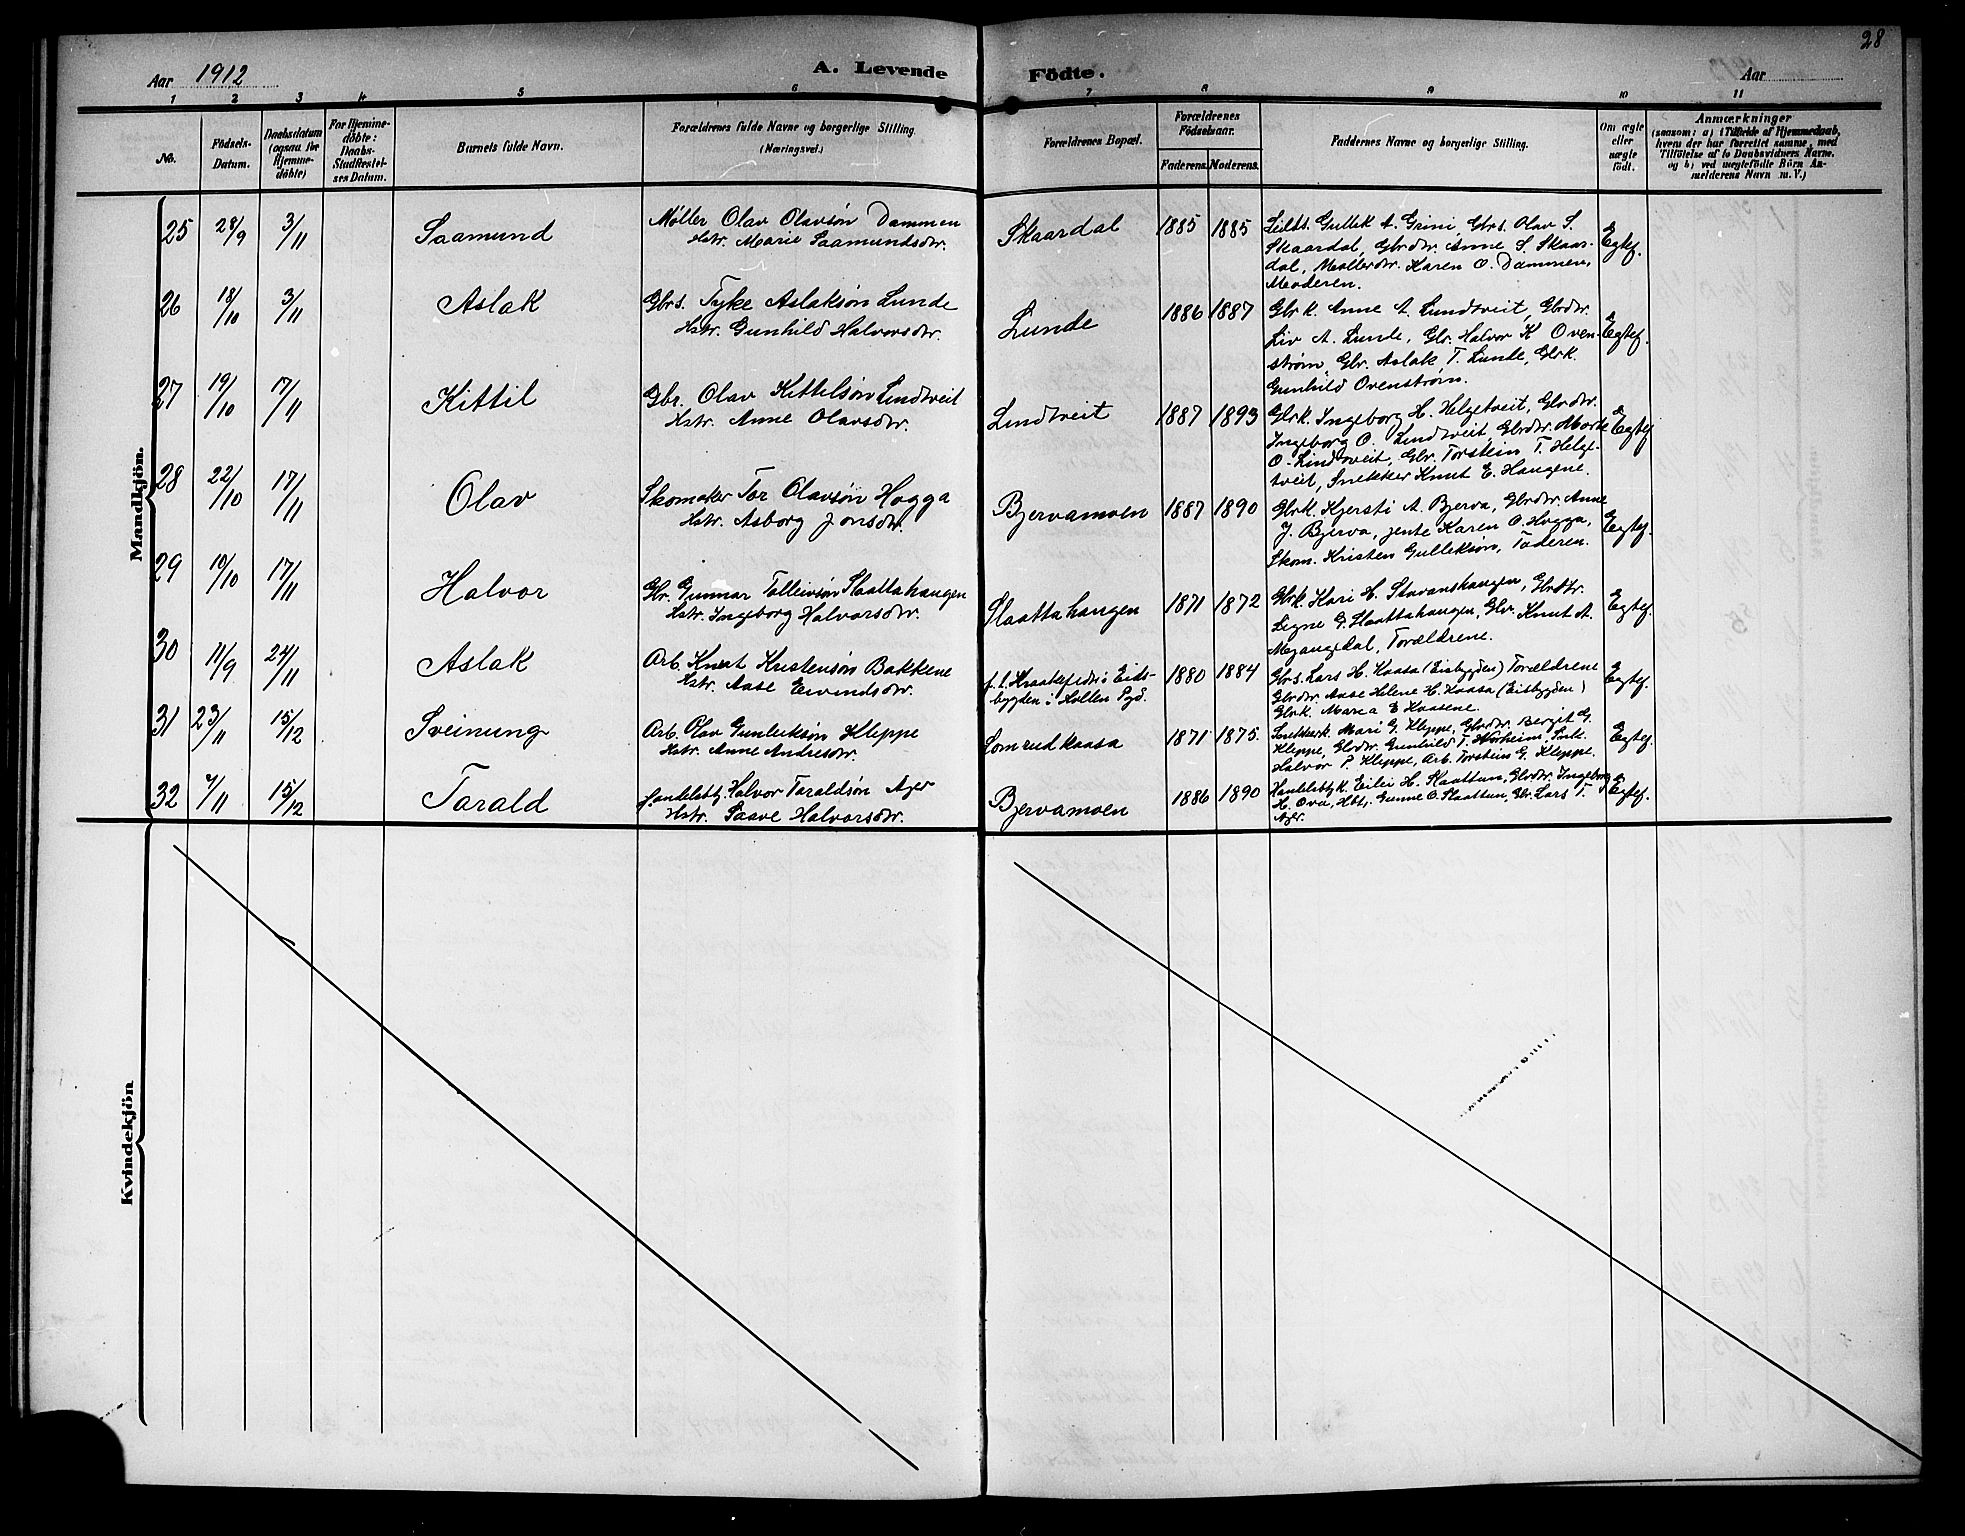 28
Aar 1912
A. Levende Födte.
Aar
1 2 3 4 5 6 7 8 9 10 11
No.
Födsels-
Datum.
Daabsdatum
(ogsaa for
Hjemme-
døbte)
For Hjemme-
döbte:
Daabs-
Stadfæstel-
ses Datum.
Barnets fulde Navn.
Forældrenes fulde Navne og borgerlige Stilling.
(Næringsvei.)
Forældrenes Bopæl.
Forældrenes
Födselsaar.
Faderens. Moderens.
Faddernes Navne og borgerlige Stilling.
Om ægte
eller
uægte
født.
Anmærkninger
(saasom: a) i Tilfælde af Hjemmedaab,
hvem der har forrettet samme, med
Tilföielse af to Daabsvidners Navne.
og b) ved uægtefödte Börn An-
melderens Navn m. V.)
Mandkjön.
25 28/9 3/11 Saamund
Møller Olav Olavsøn Dammen
Hstr. Marie Saamundsdtr.
Skaardal 1885 1885
Gullek A. Grini, Gbrs. Olav S.
Skaardal, Gbrdtr. Anne S. Skaar-
dal, Møllerdtr. Karen O. Dammen,
Moderen.
Egtef.
26 18/10 3/11 Aslak
Gbrs. Tyke Aslaksøn Lunde
Hstr. Gunhild Halvorsdtr.
Lunde 1886 1887
Gbrk. Anne A. Lundtveit, Gbrdtr.
Liv A. Lunde, Gbr. Halvor K Oven-
strøm, Gbr. Aslak T. Lunde, Gbrk.
Gunhild Ovenstrøm.
Egtef.
27 19/10 17/11 Kittil
Gbr. Olav Kittilsøn Lindtveit
Hstr. Anne Olavsdtr.
Lindtveit 1887 1893
Gbrk. Ingeborg H. Helgetveit, Gbrdtr.
Ingeborg O. Lindtveit, Gbrdtr. Marte
O. Lindtveit, Gbr. Torstein T. Helge-
tveit, Snekker Knut E. Haugene.
Egtef
28 22/10 17/11 Olav
Skomaker Tor Olavsøn Hogga
Hstr. Asborg Jonsdtr.
Bjervamoen 1887 1890
Gbrk. Kjersti A. Bjerva, Gbrdtr. Anne
J. Bjerva, jente Karen O. Hogga,
Skom. Kristen Gulleksøn, Faderen.
Egtef.
29 10/10 17/11 Halvor
Gbr. Gunnar Tolleivsøn Slaattahaugen
Hstr. Ingeborg Halvorsdtr.
Slaattahaugen 1871 1872
Gbrk. Kari H. Stavanshaugen, Gbrdtr.
Signe G. Slaattahaugen, Gbr. Knut A.
Mjaugedal, Forældrene.
Egtef.
30 11/9 24/11 Aslak
Arb. Knut Kristensøn Bakkene
Hstr. Aase Eivindsdtr.
f. t. Kraakefjeld i Eids-
bygden i Hollen Pgd.
1880 1884
Gbrs. Lars H. Kaasa (Eisbygden) Forældrene
Gbrdtr. Aase Helene H. Kaasa (Eisbygden)
Gbrk. Maria E Kaasene.
Egtef.
31 23/11 15/12 Sveinung
Arb. Olav Gunleiksøn Kleppe
Hstr. Anne Andresdtr.
Somrudkaasa 1871 1875.
Snekkerk. Mari G. Kleppe, Gbrdtr. Bergit G.
Kleppe, Gbrdtr. Gunhild T. Norheim, Snek.
Halvor P. Kleppe, Arb. Torstein G. Kleppe.
Egtef.
32 7/11 15/12 Tarald
Handelsbtj. Halvor Taraldsøn Ajer
Hstr. Saave Halvorsdtr.
Bjervamoen 1886 1890
Handelsbtj.k. Eilei H. Slaattun, Gbrdtr. Ingeborg
H. Ova, Hbtj. Gunne O. Slaattun, Gbr. Lars T.
Ajer.
Egtef.
Kvindekjön